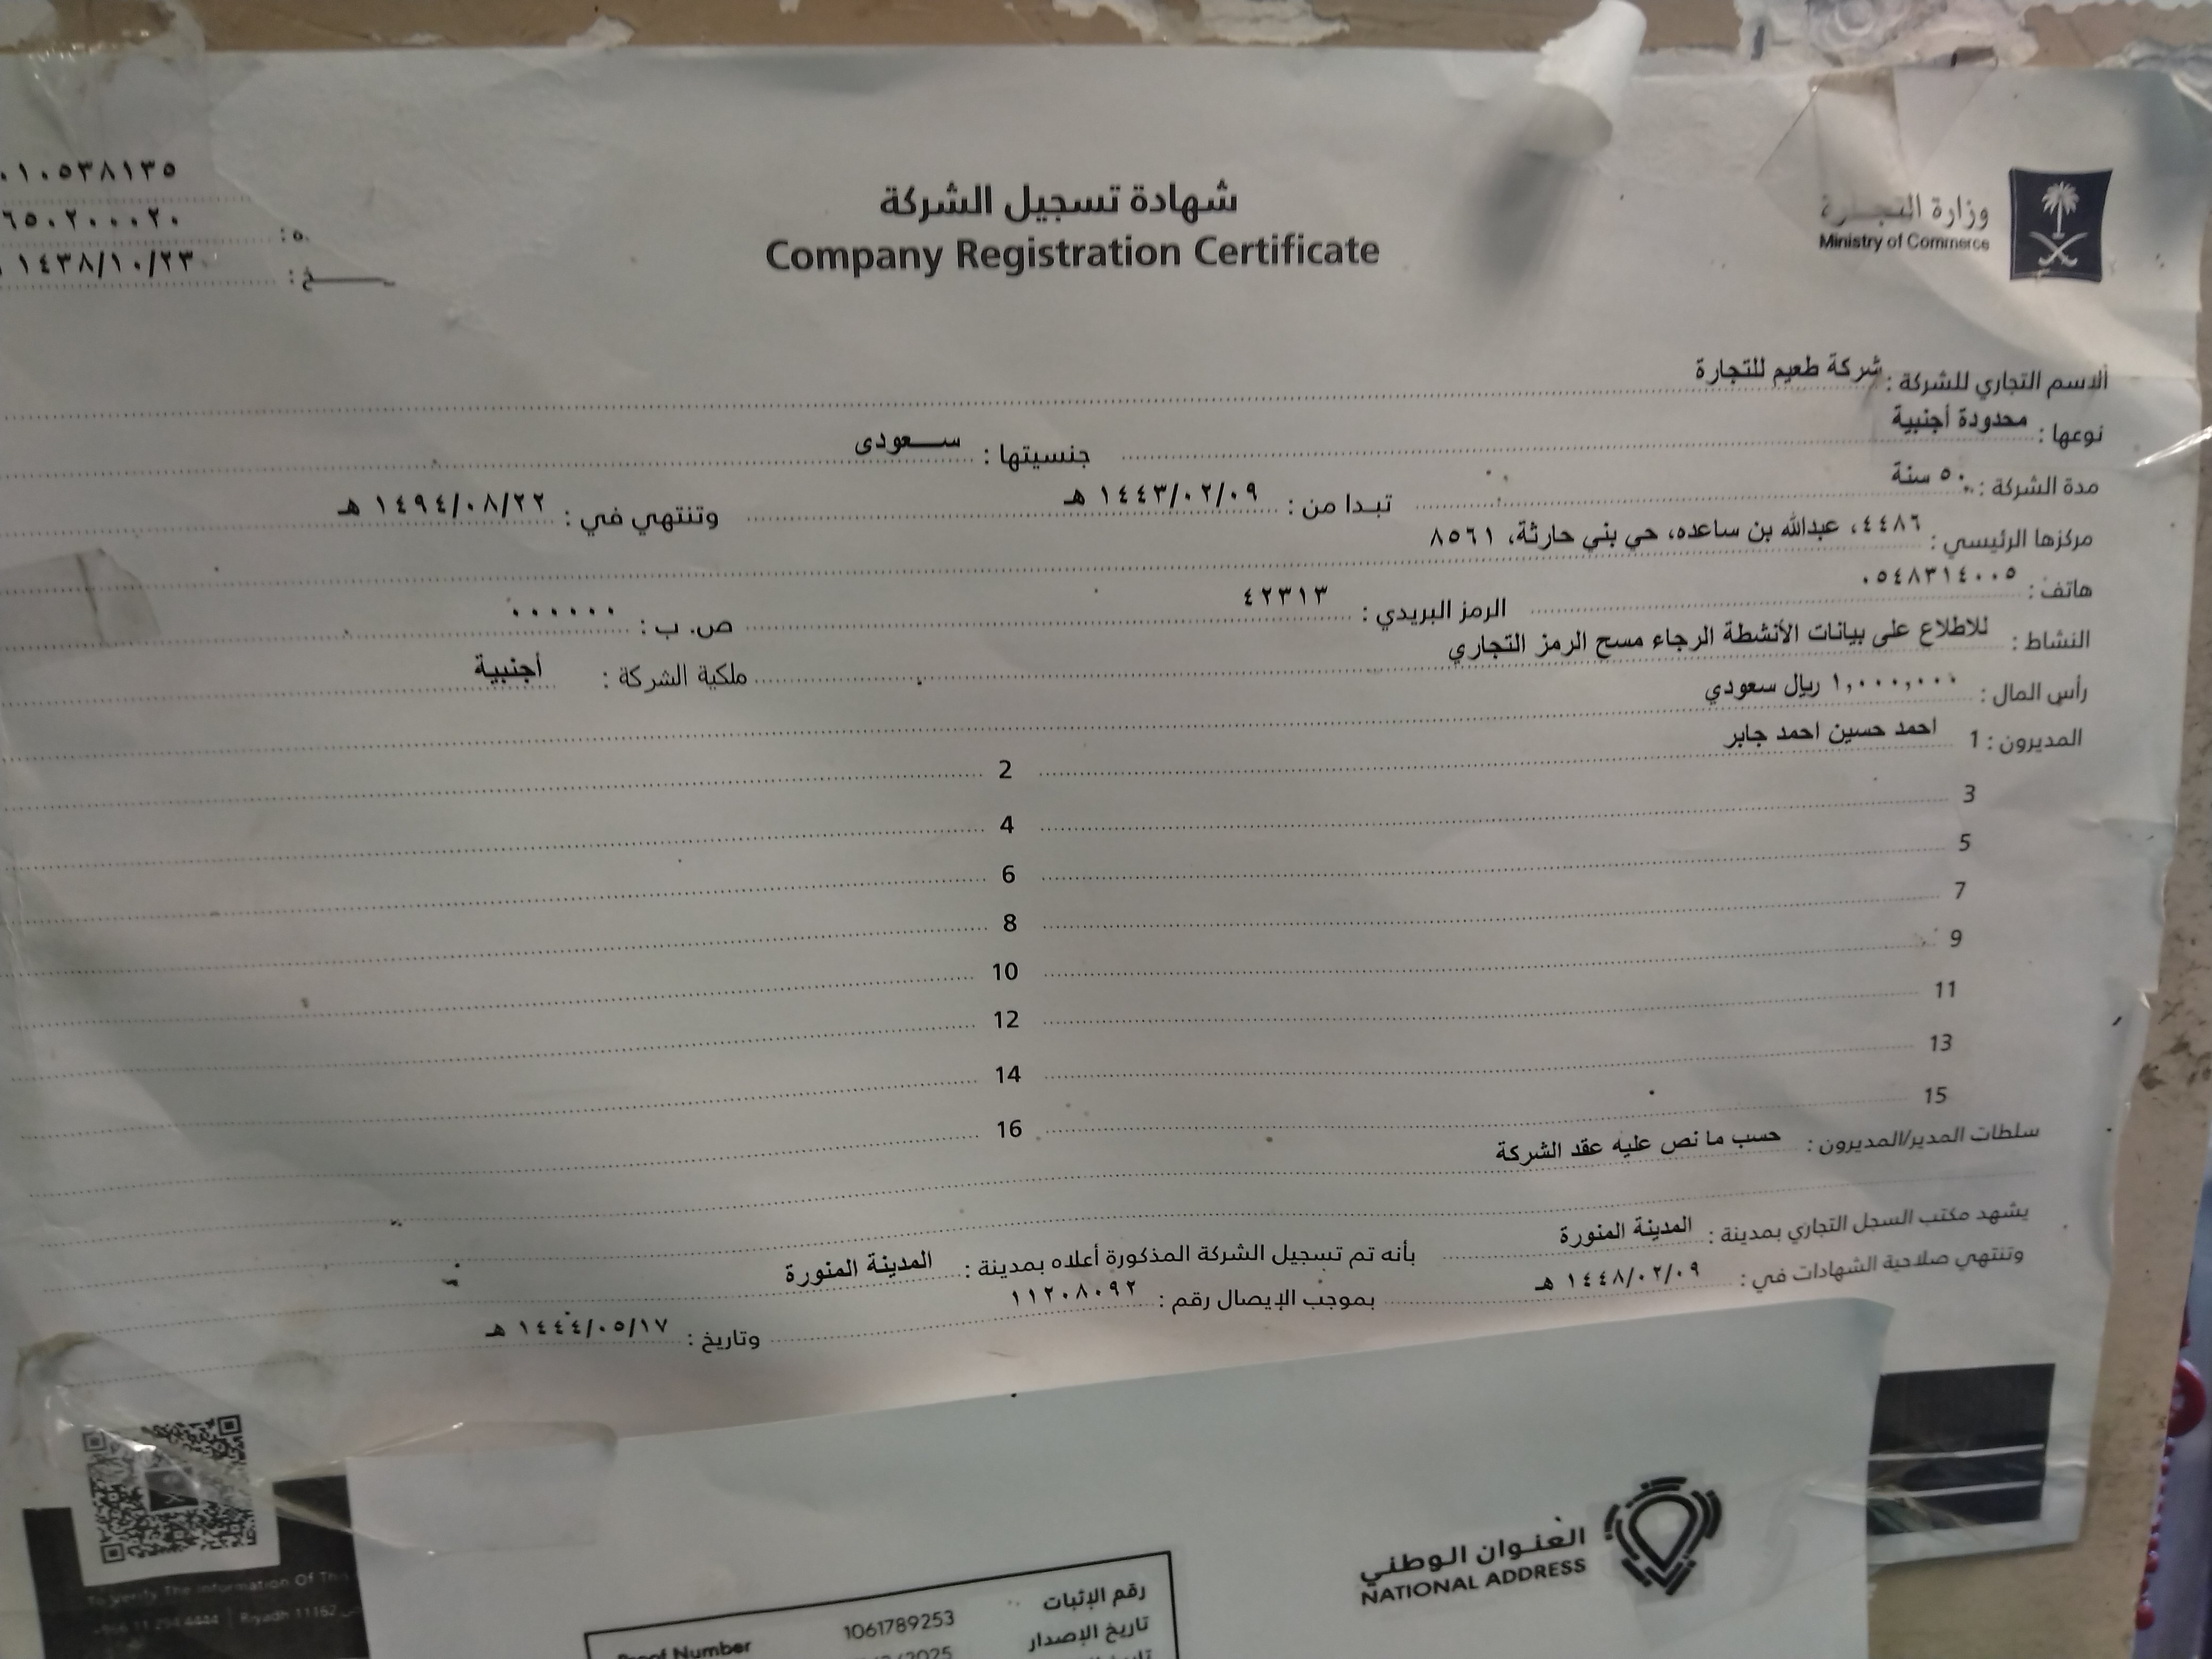 وزارة التجارة
Ministry of Commerce
شهادة تسجيل الشركة
Company Registration Certificate
٠١٠٥٣٨١٣٥
٦٥٠٢٠٠٠٢٠
١٤٣٨/١٠/٢٣
الاسم التجاري للشركة : شركة طعيم للتجارة
نوعها : محدودة أجنبية جنسيتها : سعودى
مدة الشركة : ٥٠ سنة تبدا من : ١٤٤٣/٠٢/٠٩ هـ وتنتهي في : ١٤٩٤/٠٨/٢٢ هـ
مركزها الرئيسي : ٤٤٨٦، عبدالله بن ساعده، حي بني حارثة، ٨٥٦١
هاتف : ٠٥٤٨٣١٤٠٠٥ الرمز البريدي : ٤٢٣١٣ ص. ب : ٠٠٠٠٠٠
النشاط : للاطلاع على بيانات الأنشطة الرجاء مسح الرمز التجاري
رأس المال : ١,٠٠٠,٠٠٠ ريال سعودي ملكية الشركة : أجنبية
المديرون : 1 احمد حسين احمد جابر
2
3
4
5
6
7
8
9
10
11
12
13
14
15
16
سلطات المدير/المديرون : حسب ما نص عليه عقد الشركة
يشهد مكتب السجل التجاري بمدينة : المدينة المنورة بأنه تم تسجيل الشركة المذكورة أعلاه بمدينة : المدينة المنورة
وتنتهي صلاحية الشهادات في : ١٤٤٨/٠٢/٠٩ هـ بموجب الإيصال رقم : ١١٢٠٨٠٩٢ وتاريخ : ١٤٤٤/٠٥/١٧ هـ
To Verify The Information Of This
+966 11 294 4444 | Riyadh 11162
العنوان الوطني
NATIONAL ADDRESS
رقم الإثبات 1061789253 Proof Number
تاريخ الإصدار